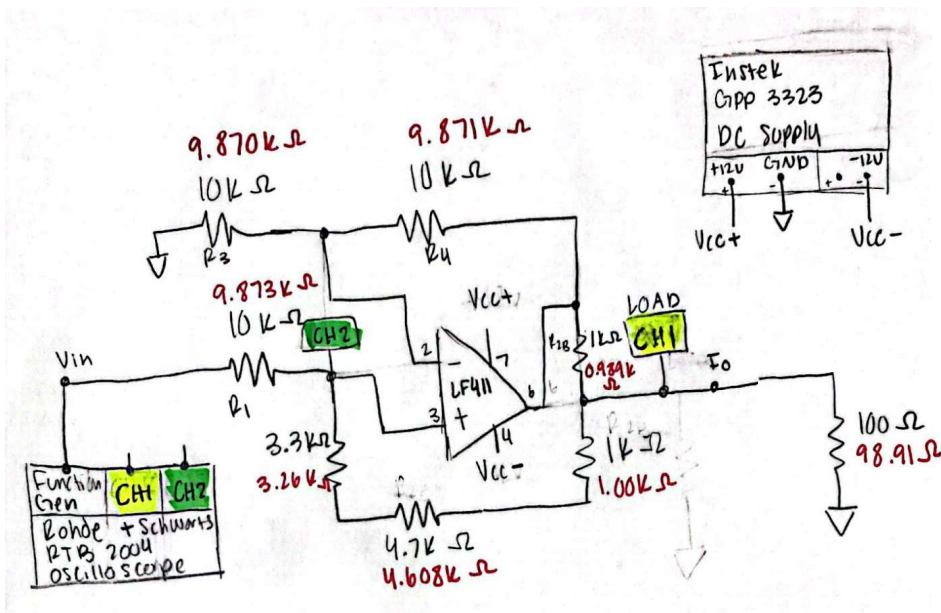 Instek
GPP 3323
DC Supply
+12V GND -12V
+ - + -
Vcc+
Vcc-
9.870K Ω
10K Ω
R3
9.871K Ω
10K Ω
R4
9.873K Ω
10K Ω
CH2
Vin
R1
Vcc+
2 -
7
LF411
6
3 +
4
Vcc-
R2B
1KΩ
0.989K
Ω
LOAD
CH1
Io
3.3KΩ
3.26KΩ
1K Ω
1.00KΩ
4.7K Ω
4.608KΩ
100 Ω
98.91Ω
Function
Gen
CH1
CH2
Rohde + Schwarts
RTB 2004
oscilloscope